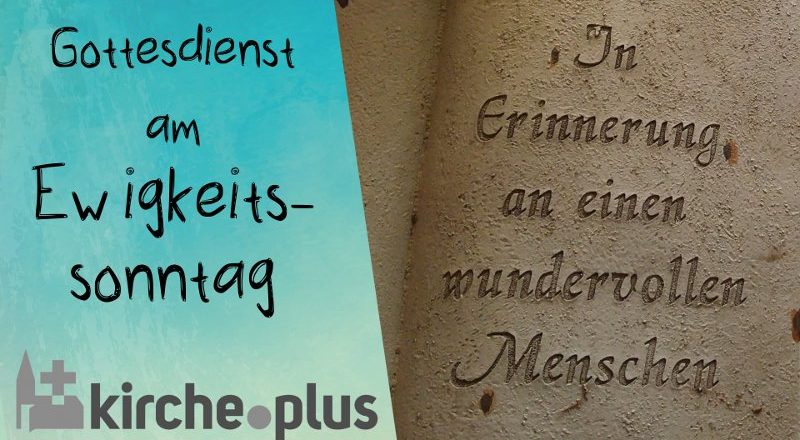 Gottesdienst
am
Ewigkeits-
sonntag
kirche.plus
In
Erinnerung
an einen
wundervollen
Menschen